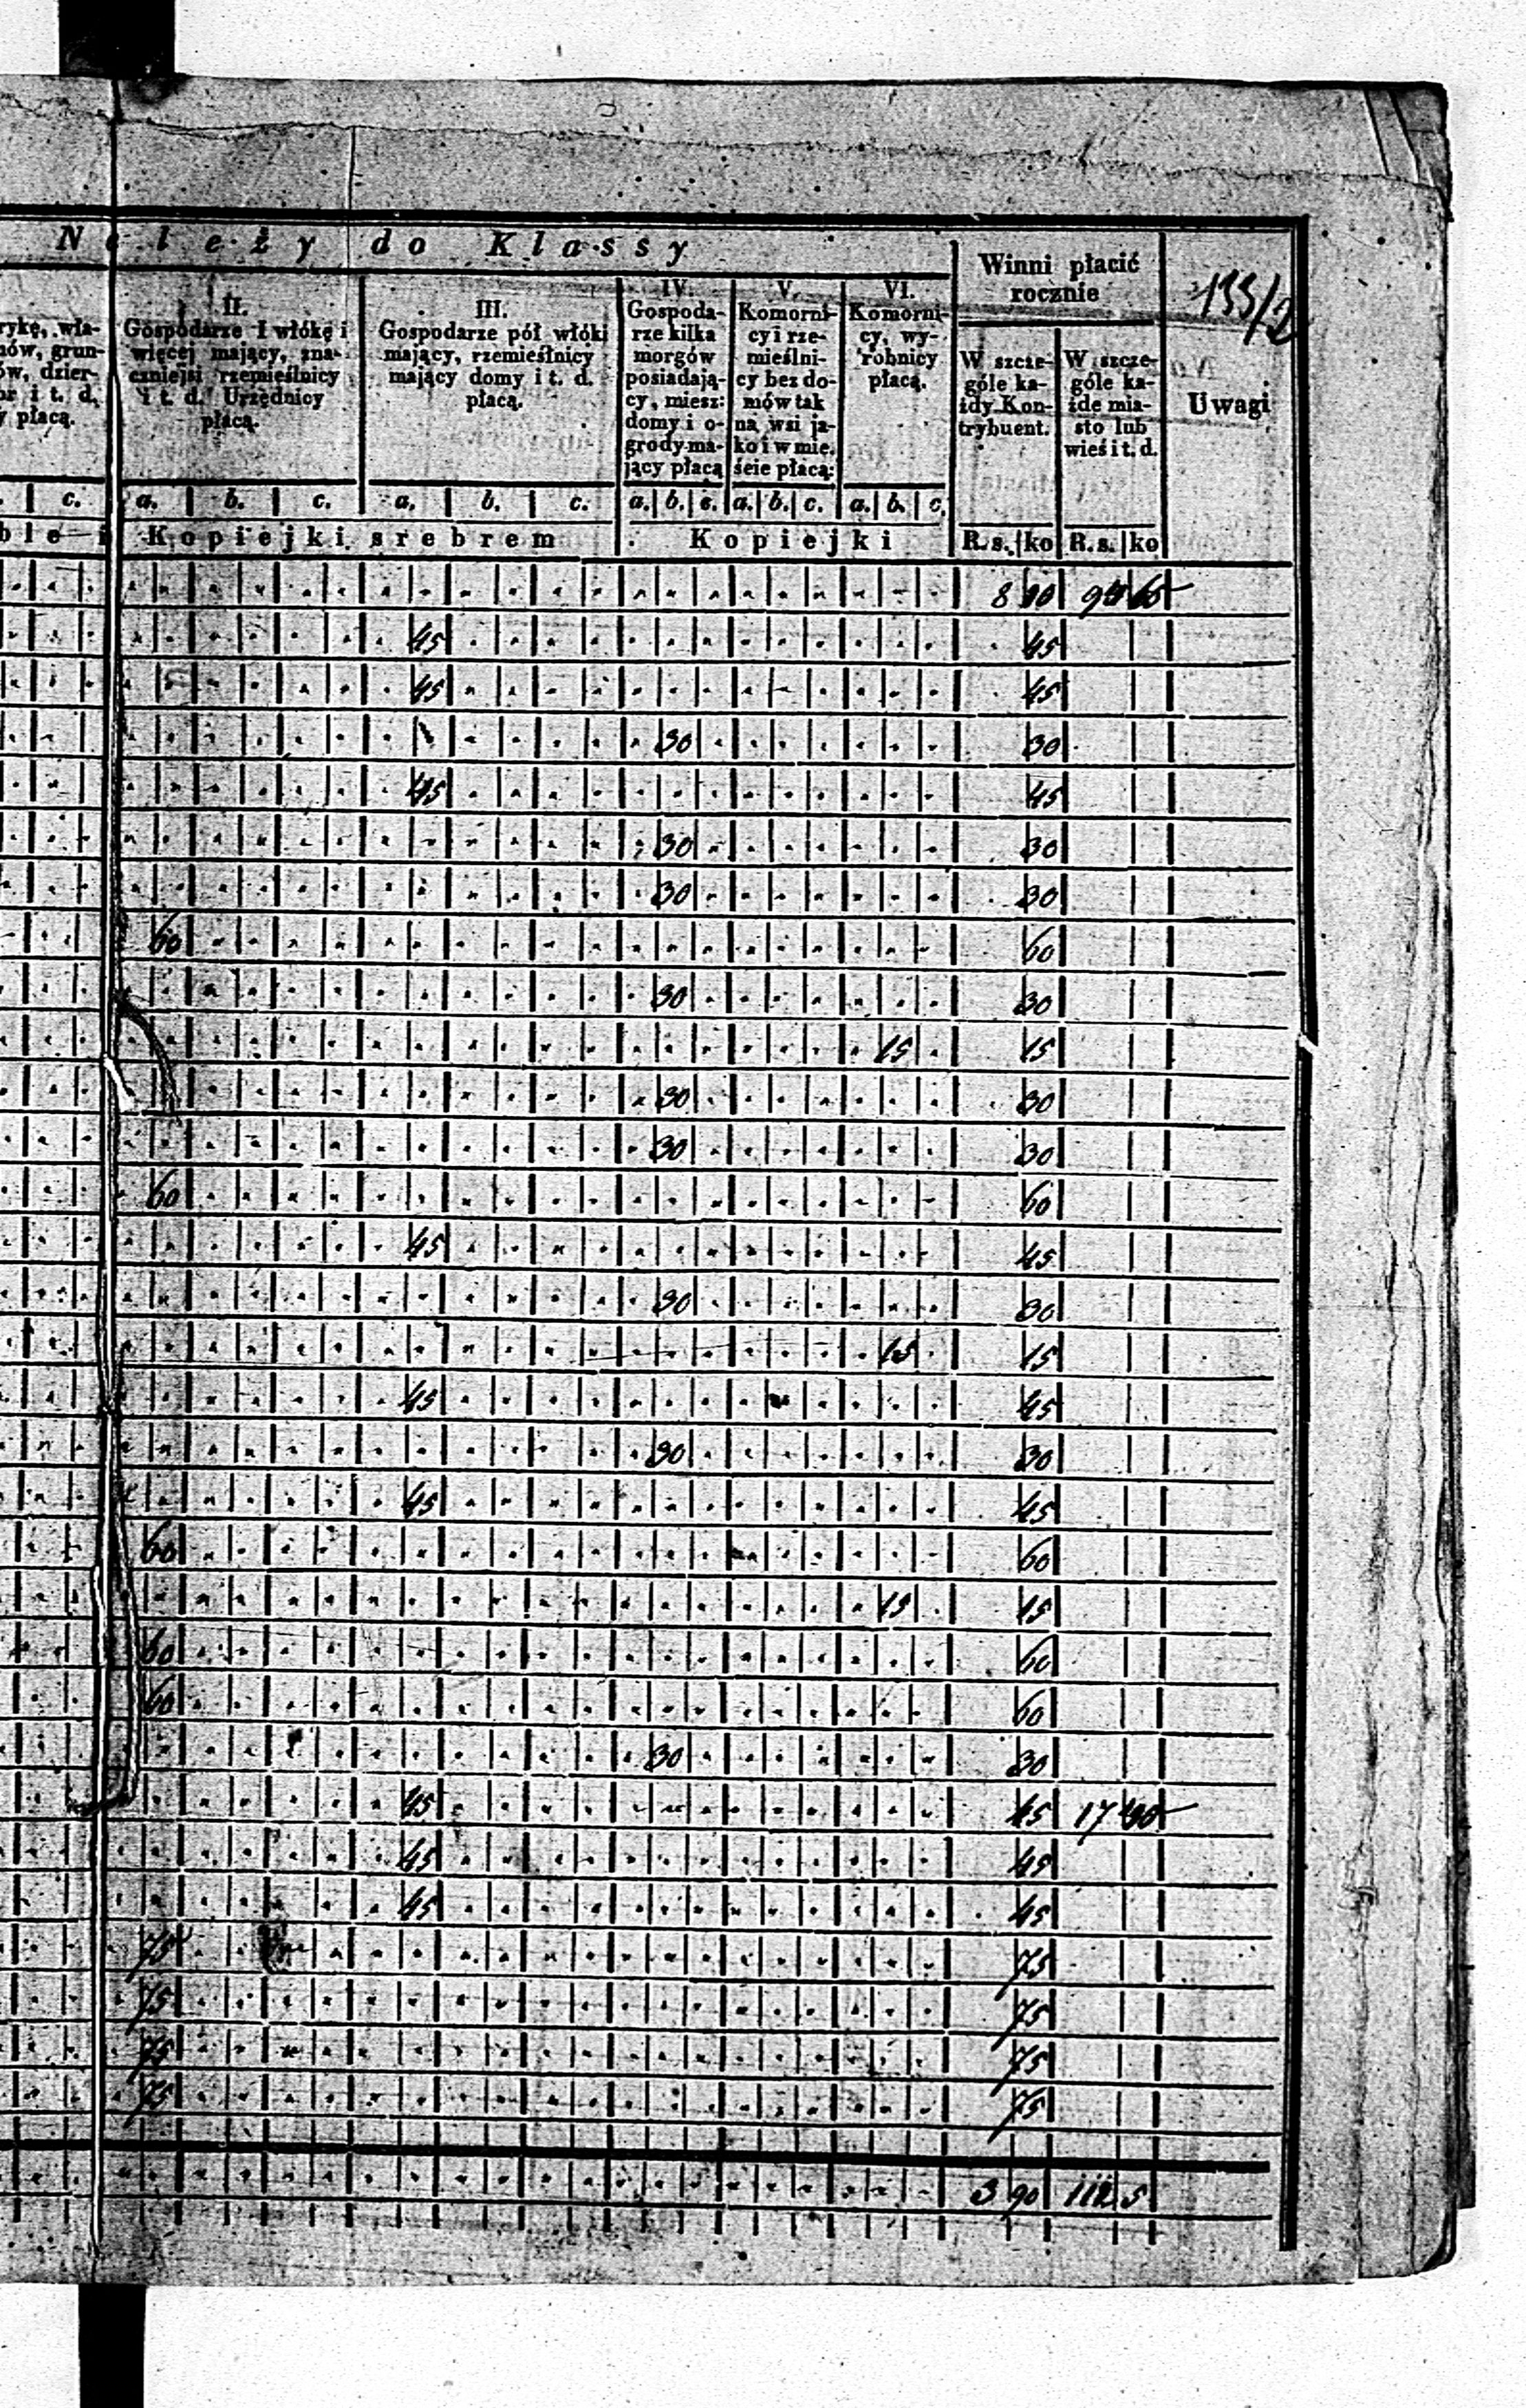 Należy do Klassy
Winni płacić
rocznie
Uwagi
rykę, wła-
mów, grun-
ów, dzier-
or i t. d.
y płacą.
II.
Gospodarze 1 włókę i
więcej mający, zna-
czniejsi rzemieślnicy
i t. d. Urzędnicy
płacą.
III.
Gospodarze pół włóki
mający, rzemieślnicy
mający domy i t. d.
płacą.
IV.
Gospoda-
rze kilka
morgów
posiadają-
cy, miesz:
domy i o-
grody ma-
jący płacą
V.
Komorni-
cy i rze-
mieślni-
cy bez do-
mów tak
na wsi ja-
ko i w mie-
ście płacą:
VI.
Komorni-
cy, wy-
robnicy
płacą.
W szcze-
góle ka-
żdy Kon-
trybuent.
W szcze-
góle ka-
żde mia-
sto lub
wieś i t. d.
c. a. b. c. a. b. c. a. b. c. a. b. c. a. b. c.
ble i Kopiejki srebrem Kopiejki R.s. ko R.s. ko
8
45 45
45 45
30 30
45 45
30 30
30 30
60 60
30 30
15 15
30 30
30 30
60 60
45 45
30 30
15 15
45 45
30 30
45 45
60 60
15 15
60 60
60 60
30 30
45 45 17
45 45
45 45
75 75
75 75
75 75
75 75
3 90 112 5